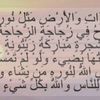 ات وَالْأَرْضِ مَثَلُ نُور
ح فِي زُجَاجَةٍ الزُّجَاجَةُ
شَجَرَةٍ مُبَارَكَةٍ زَيْتُونَ
هَا يُضِيءُ وَلَوْ لَمْ تَمْسَ
اللَّهُ لِنُورِهِ مَنْ يَشَاءُ وَ
لِلنَّاسِ وَاللَّهُ بِكُلِّ شَيْءٍ